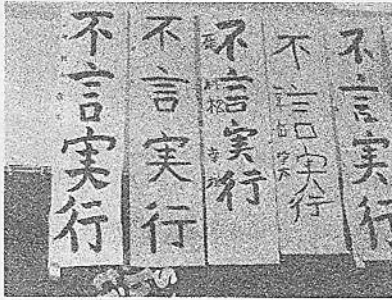 不言実行
不言実行
不言実行
不言実行
不言実行